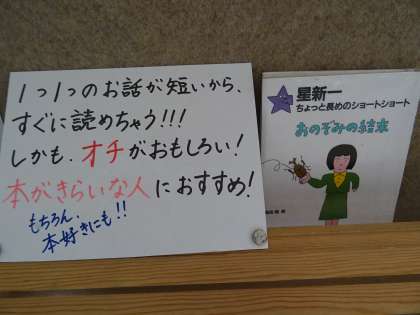 1つ1つのお話が短いから、
すぐに読めちゃう!!!
しかも、オチがおもしろい!
本がきらいな人におすすめ!
もちろん、
本好きにも!!
星新一
ちょっと長めのショートショート
おのぞみの結末